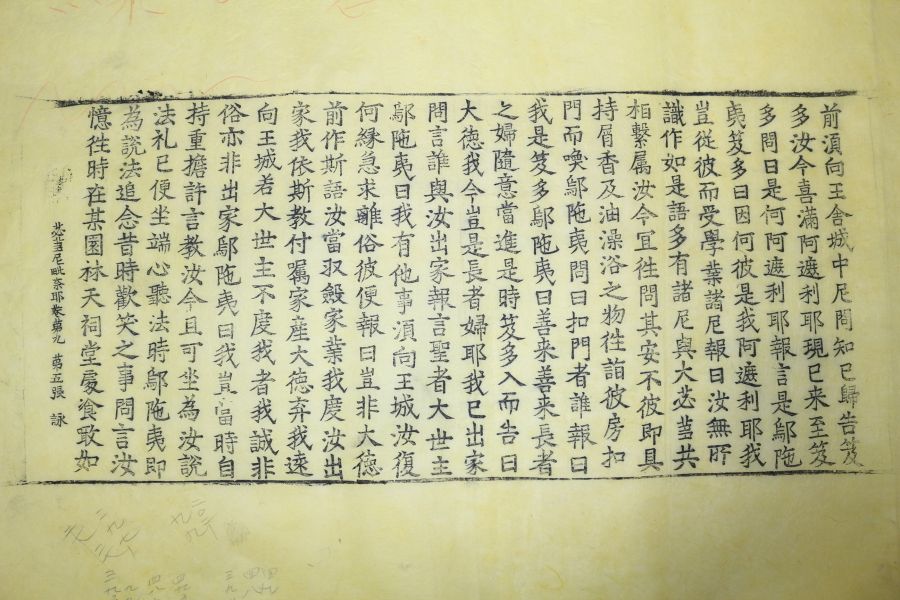 前湏向王舍城中尼問知已歸告笈
多汝今喜滿阿遮利耶現已来至笈
多問曰是何阿遮利耶報言是鄔陁
夷笈多曰因何彼是我阿遮利耶我
豈從彼而受學業諸尼報曰汝無所
識作如是語多有諸尼與大苾芻共
相繫属汝今冝徃問其安不彼即具
持屑香及油澡浴之物徃詣彼房扣
門而喚鄔陁夷問曰扣門者誰報曰
我是笈多鄔陁夷曰善来善来長者
之婦隨意當進是時笈多入而告曰
大德我今豈是長者婦耶我已出家
問言誰與汝出家報言聖者大世主
鄔陁夷曰我有他事湏向王城汝復
何緣急求離俗彼便報曰豈非大德
前作斯語汝當㪅㲉家業我度汝出
家我依斯教付囑家産大德弃我速
向王城若大世主不度我者我誠非
俗亦非出家鄔陁夷曰我豈當時自
持重擔許言教汝今且可坐為汝説
法礼已便坐端心聽法時鄔陁夷即
為説法追念昔時歡笑之事問言汝
憶徃時在某園林天祠堂處飡敢如
苾芻尼毗奈耶卷第九 第五張 詠